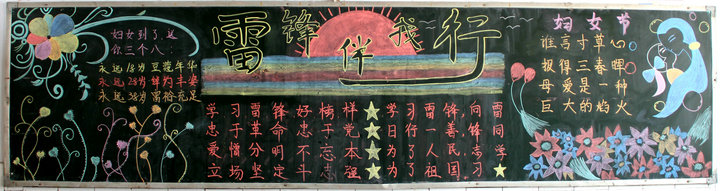 雷锋伴我行
妇女到了这
你三个八:
永远18岁豆蔻年华
永远28岁
永远38岁富裕充足
学习雷锋好榜样★学习雷锋向雷
忠于革命忠于党★日行一善锋同
爱憎分明不忘本★为了人民志学
立场坚定斗志强★为了祖国习★
妇女节
谁言寸草心
报得三春晖
母爱是一种
巨大的焰火